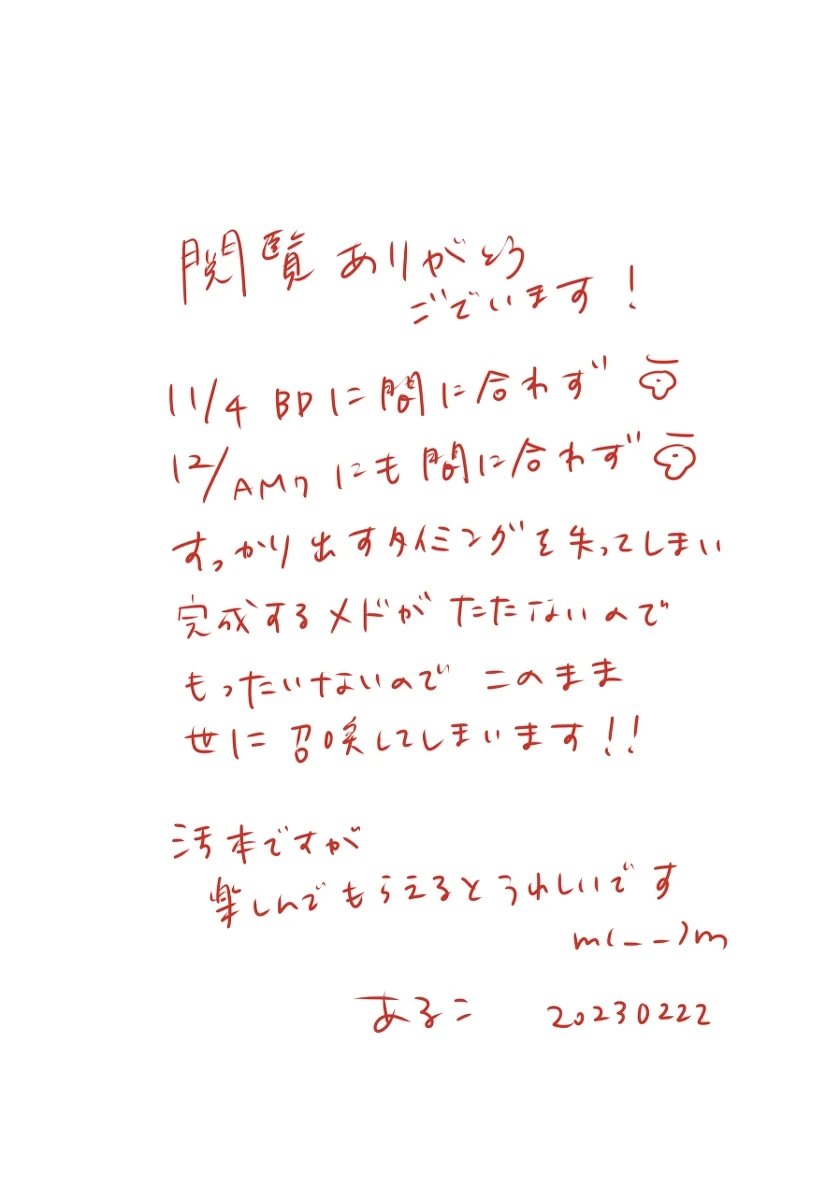 閲覧ありがとう
ございます!
11/4 BDに間に合わず
12/AM7にも間に合わず
すっかり出すタイミングを失ってしまい
完成するメドがたたないので
もったいないので このまま
世に召喚してしまいます!!
汚本ですが
楽しんでもらえるとうれしいです
m(_ _)m
あるこ 20230222